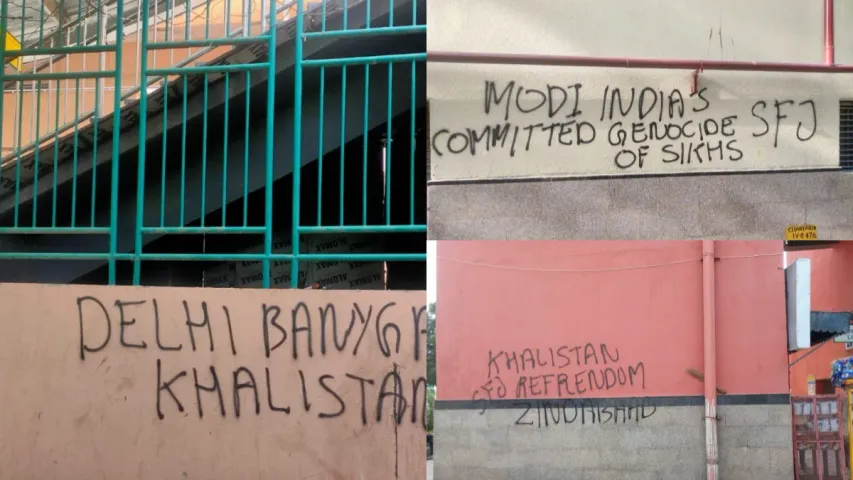 DELHI BANYG
KHALISTAN
MODI INDIA'S
COMMITTED GENOCIDE SFJ
OF SIKHS
KHALISTAN
SFJ REFRENDOM
ZINDABAAD